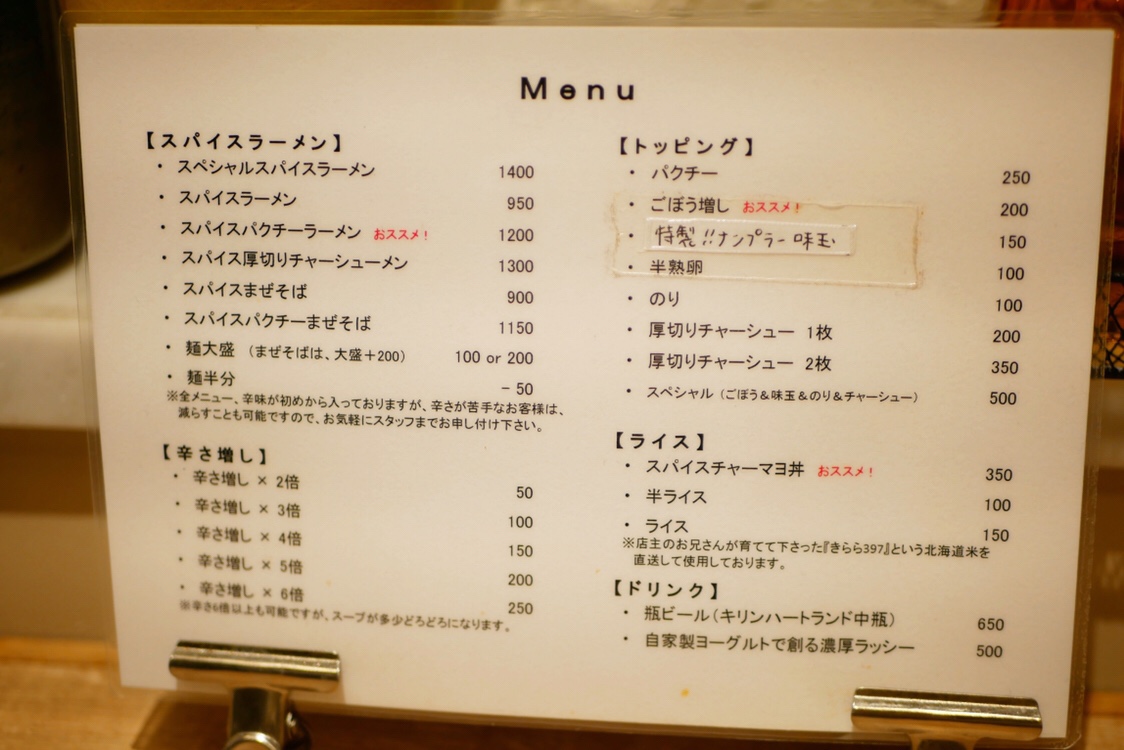 Menu
【スパイスラーメン】
・ スペシャルスパイスラーメン 1400
・ スパイスラーメン 950
・ スパイスパクチーラーメン おススメ！ 1200
・ スパイス厚切りチャーシューメン 1300
・ スパイスまぜそば 900
・ スパイスパクチーまぜそば 1150
・ 麺大盛 （まぜそばは、大盛＋200） 100 or 200
・ 麺半分 − 50
※全メニュー、辛味が初めから入っておりますが、辛さが苦手なお客様は、
減らすことも可能ですので、お気軽にスタッフまでお申し付け下さい。
【辛さ増し】
・ 辛さ増し × 2倍 50
・ 辛さ増し × 3倍 100
・ 辛さ増し × 4倍 150
・ 辛さ増し × 5倍 200
・ 辛さ増し × 6倍 250
※辛さ6倍以上も可能ですが、スープが多少どろどろになります。
【トッピング】
・ パクチー 250
・ ごぼう増し おススメ！ 200
・ 特製!!ナンプラー味玉 150
・ 半熟卵 100
・ のり 100
・ 厚切りチャーシュー 1枚 200
・ 厚切りチャーシュー 2枚 350
・ スペシャル（ごぼう＆味玉＆のり＆チャーシュー） 500
【ライス】
・ スパイスチャーマヨ丼 おススメ！ 350
・ 半ライス 100
・ ライス 150
※店主のお兄さんが育てて下さった『きらら397』という北海道米を
直送して使用しております。
【ドリンク】
・ 瓶ビール（キリンハートランド中瓶） 650
・ 自家製ヨーグルトで創る濃厚ラッシー 500